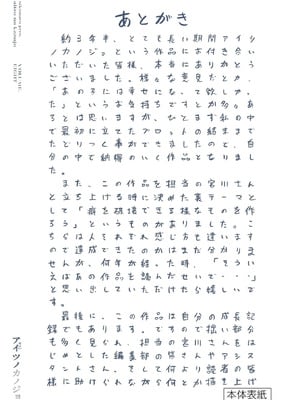 あとがき
約3年半、とても長い期間アイシ
ノカノジョという作品にお付き合い
いただいた皆様、本当にありがとう
ございました。様々な意見だとか、
「あの子には幸せになって欲しかっ
た」というお気持ちですとか多々あ
るとは思いますが、ひとまず私の中
で最初に立てたプロットの結末まで
たどりつく事ができましたので、自
分の中で納得のいく作品となりまし
た。
また、この作品を担当の宮川さん
と立ち上げる時に決めた裏テーマと
して「癖を破壊できる様なものを作
ろう」というものがありました。こ
ちらは人それぞれ感じ方も違います
ので達成できたのかはまだ分かりま
せんが、何年か経った時、「そうい
えばあの作品を読んだせいで・・・」
と思い出していただけたら嬉しいで
す。
最後に、この作品は自分の成長記
録でもあります。ですので拙い部分
も多く見られ、担当の宮川さんをは
じめとした編集部の皆さんやアシス
タントさん、そして何より読者の皆
様に助けられながら何とか描き上げ
アイシノカノジョ
本体表紙